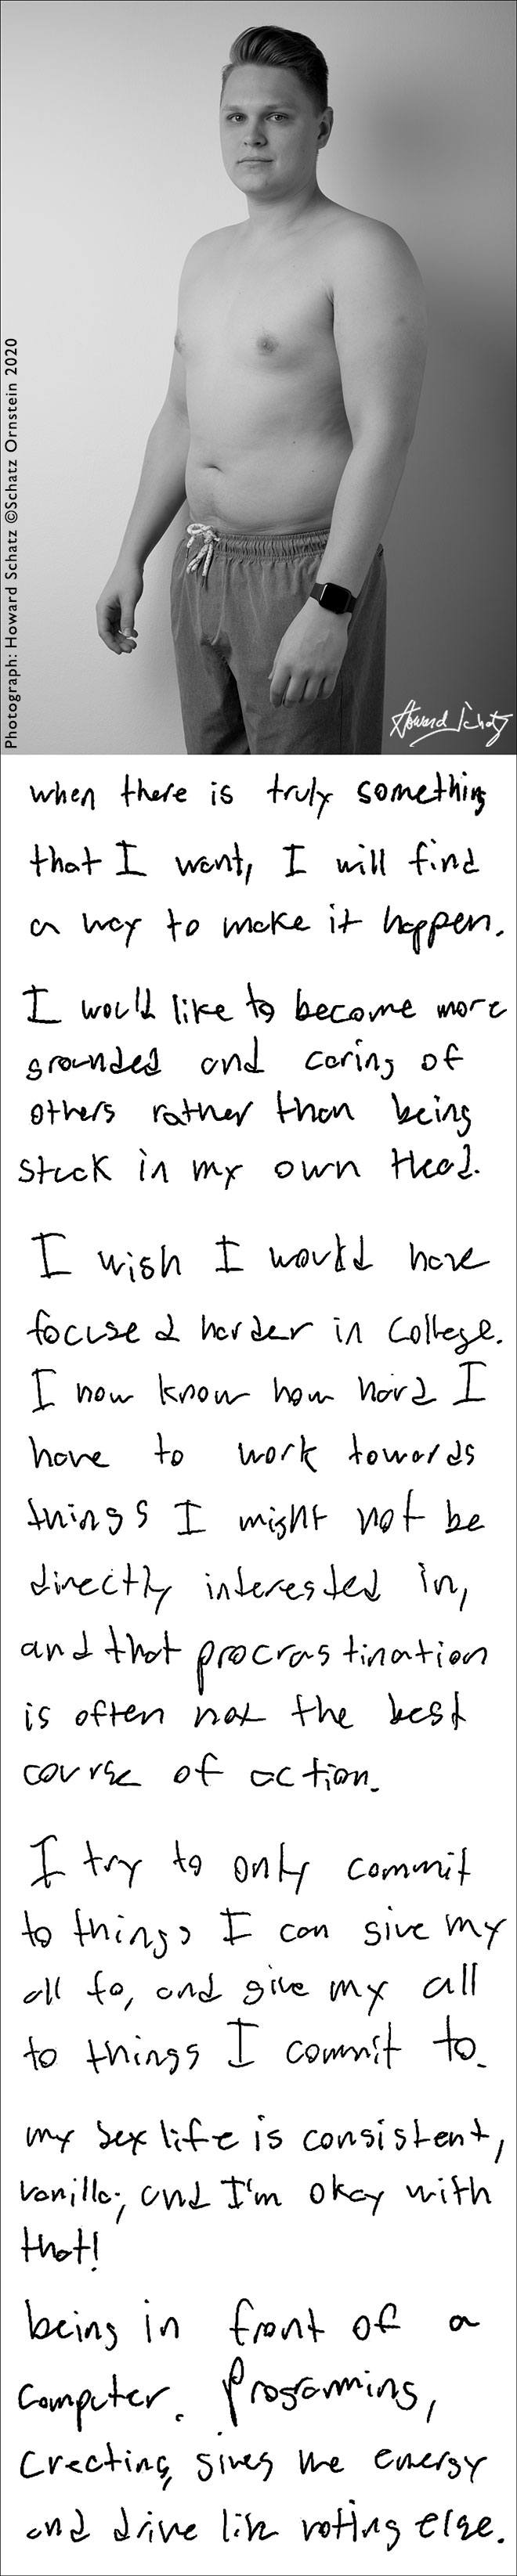 Photograph: Howard Schatz ©Schatz Ornstein 2020
Howard Schatz
when there is truly something
that I want, I will find
a way to make it happen.
I would like to become more
grounded and caring of
others rather than being
stuck in my own head.
I wish I would have
focused harder in College.
I now know how hard I
have to work towards
things I might not be
directly interested in,
and that procrastination
is often not the best
course of action.
I try to only commit
to things I can give my
all to, and give my all
to things I commit to.
my sex life is consistent,
vanilla, and I'm okay with
that!
being in front of a
computer. Programming,
Creating, gives me energy
and drive like nothing else.